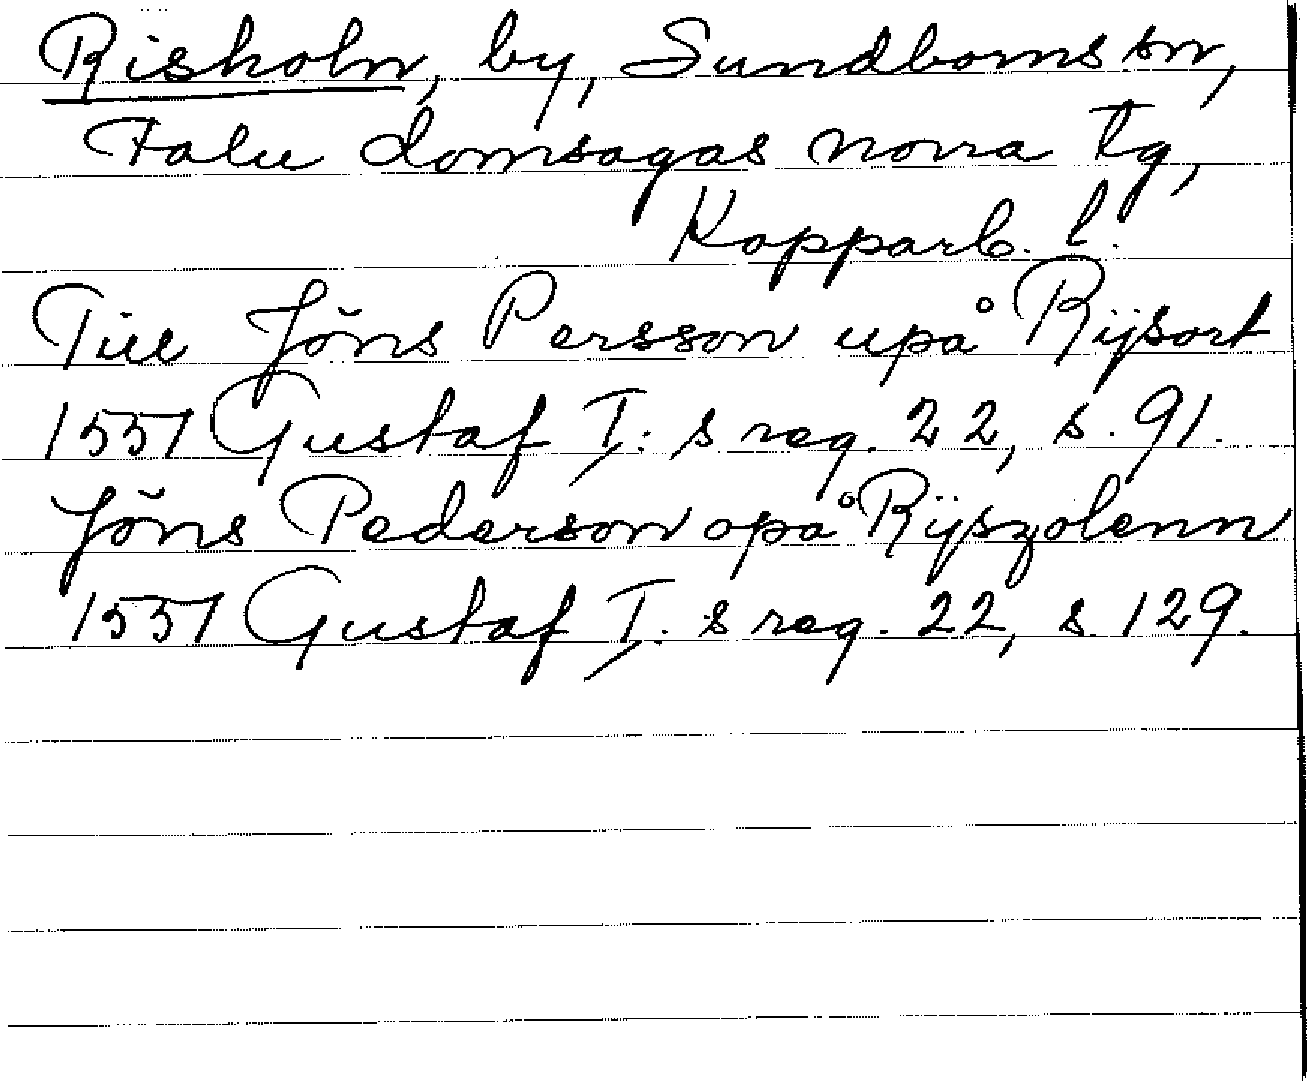 Risholn, by, Sundborns sn,
Falu domsagas norra tg,
Kopparb. l.
Till Jöns Persson upå Rijsort
1551 Gustaf I: s reg. 22, s. 91.
Jöns Pederson opå Rijszolenn
1551 Gustaf I: s reg. 22, s. 129.